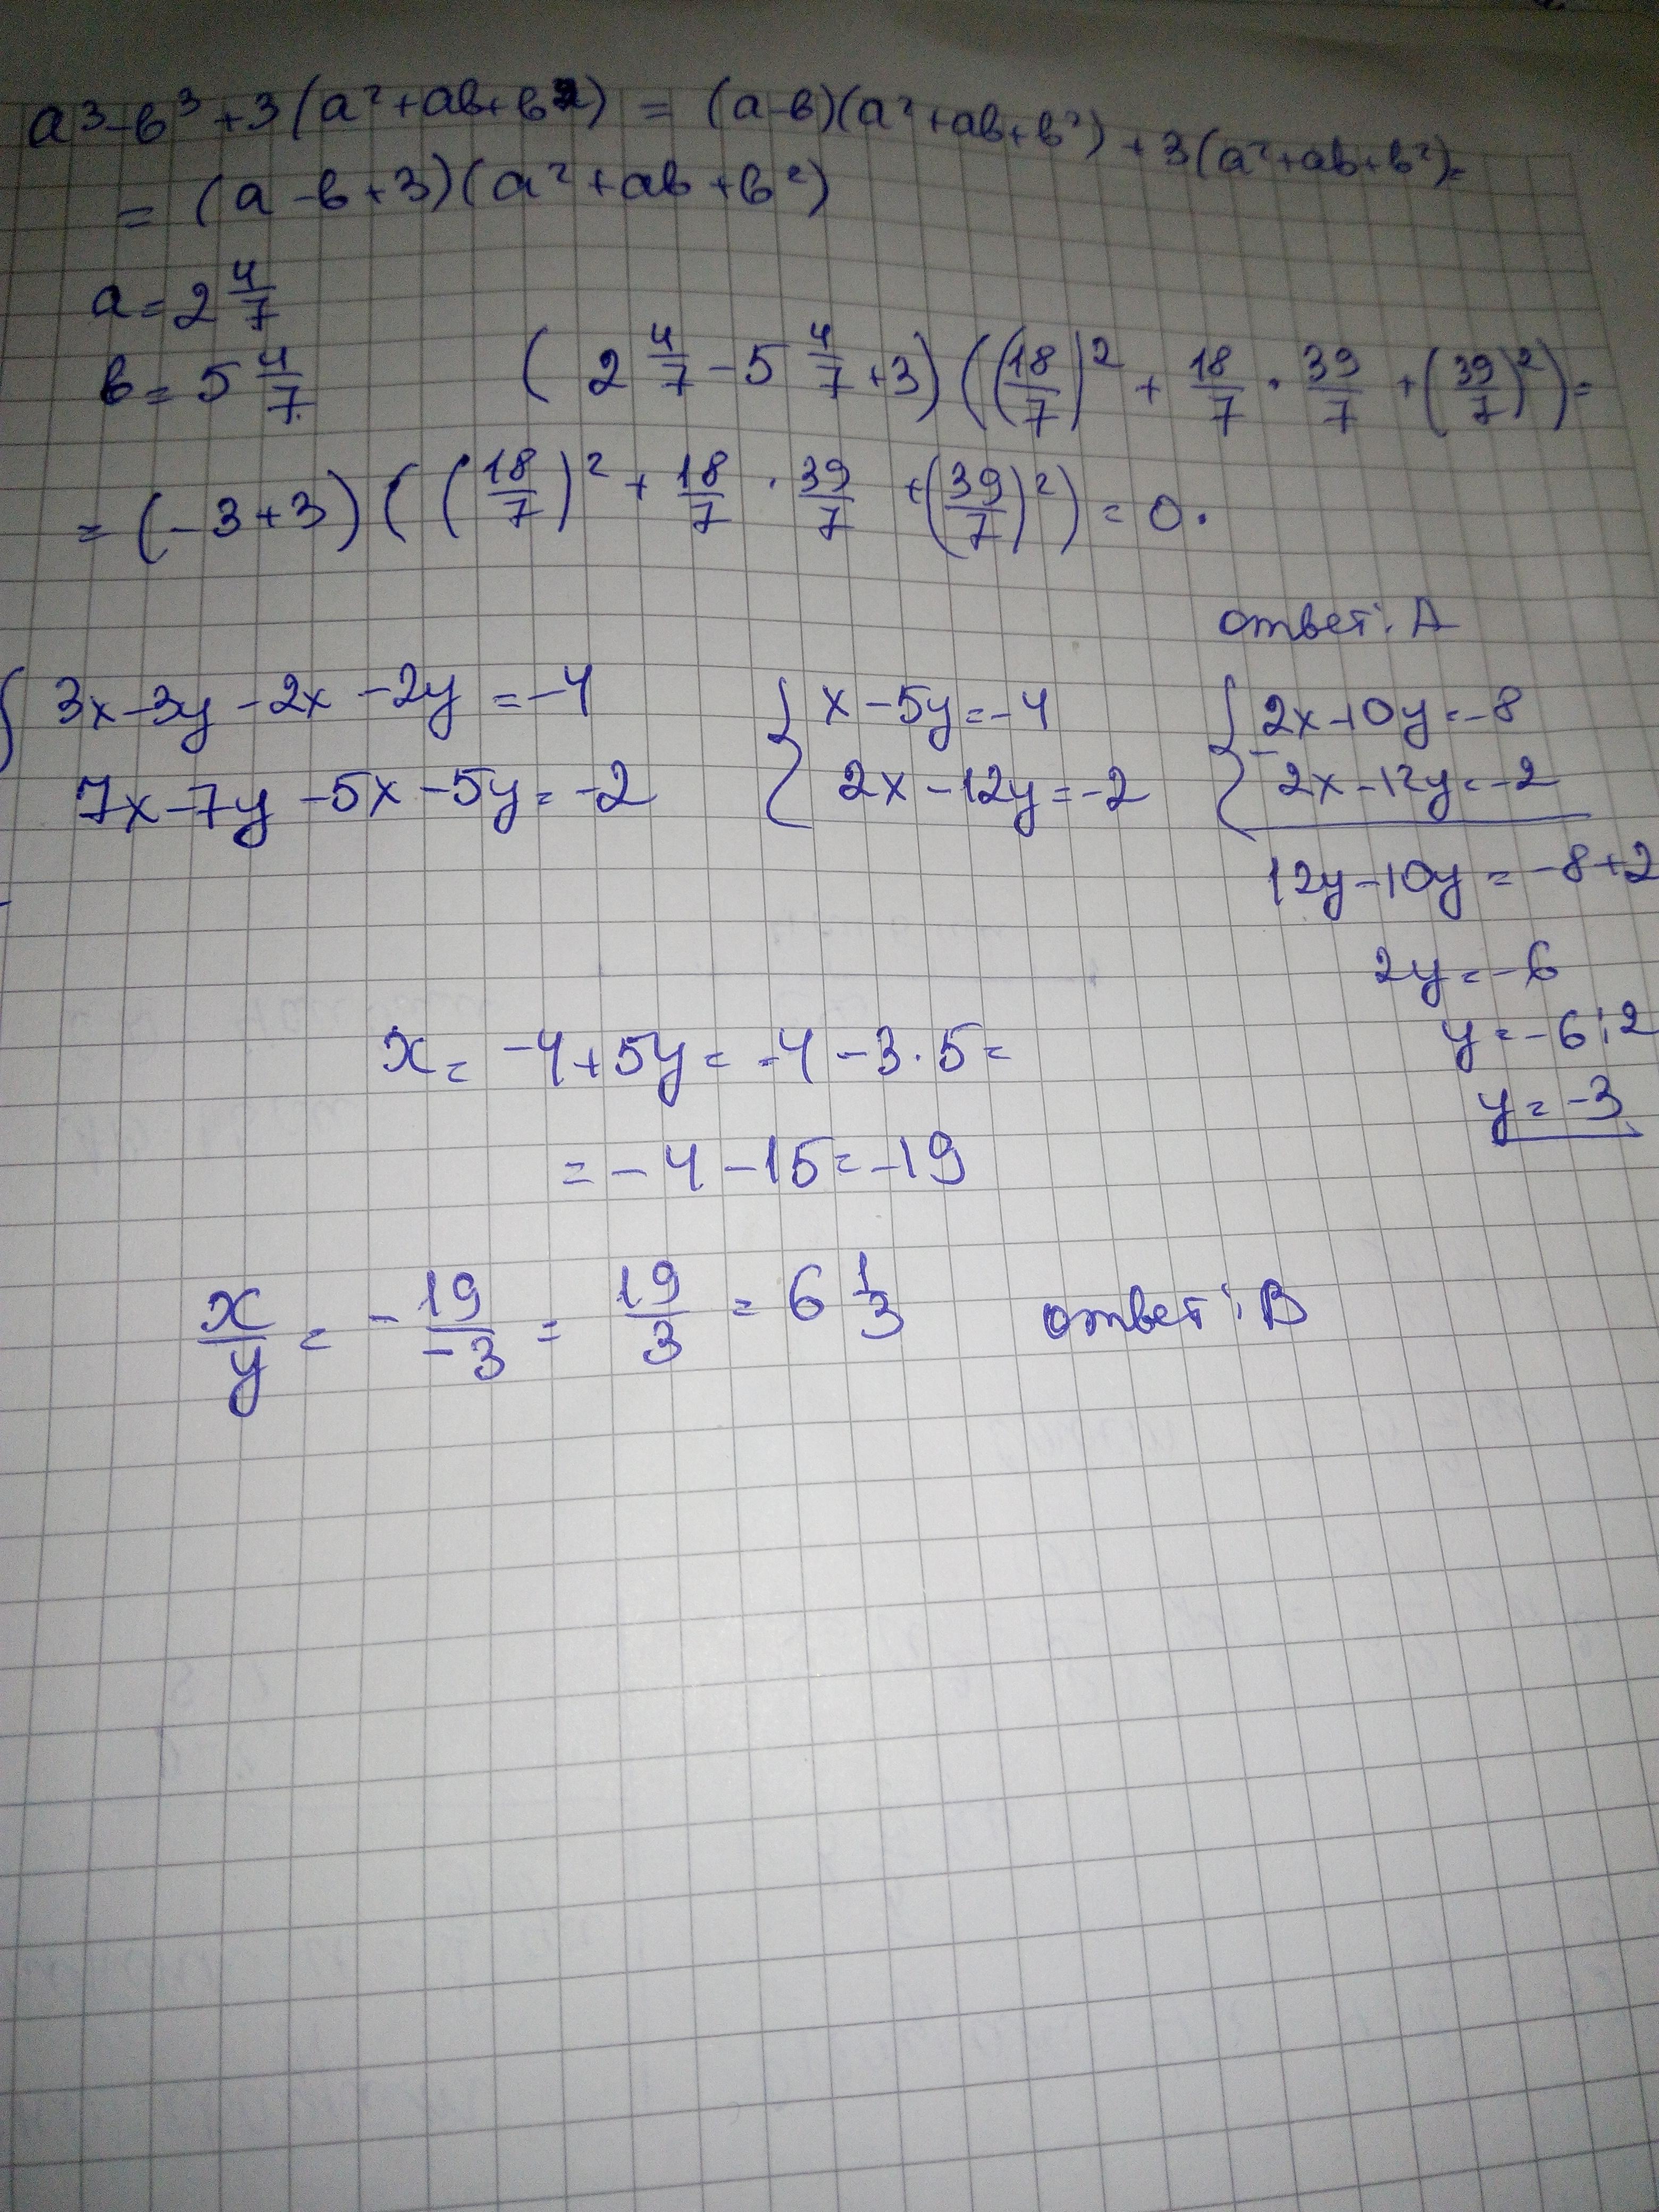 a³-в³+3(a²+aв+в²) = (a-в)(a²+aв+в²)+3(a²+aв+в²)=
= (a-в+3)(a²+aв+в²)
a=2 4/7
в=5 4/7. (2 4/7 -5 4/7 +3)((18/7)²+ 18/7 · 39/7 +(39/7)²)=
= (-3+3)((18/7)²+ 18/7 · 39/7 +(39/7)²) = 0.
ответ: A
{ 3x-3y-2x-2y=-4 { x-5y=-4 { 2x-10y=-8
7x-7y-5x-5y=-2 2x-12y=-2 - 2x-12y=-2
12y-10y=-8+2
2y=-6
y=-6:2
y=-3
x= -4+5y= -4-3·5=
=-4-15=-19
x/y = -19/-3 = 19/3 = 6 1/3 ответ: B